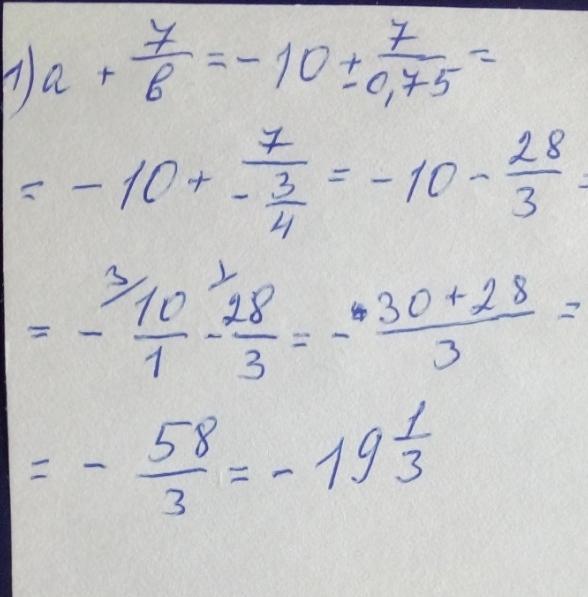 1) a + 7/в = -10 + 7/-0,75 =
= -10 + 7/-3/4 = -10 - 28/3 =
= - 3/ 10/1 - 1/ 28/3 = - 30+28/3 =
= - 58/3 = -19 1/3